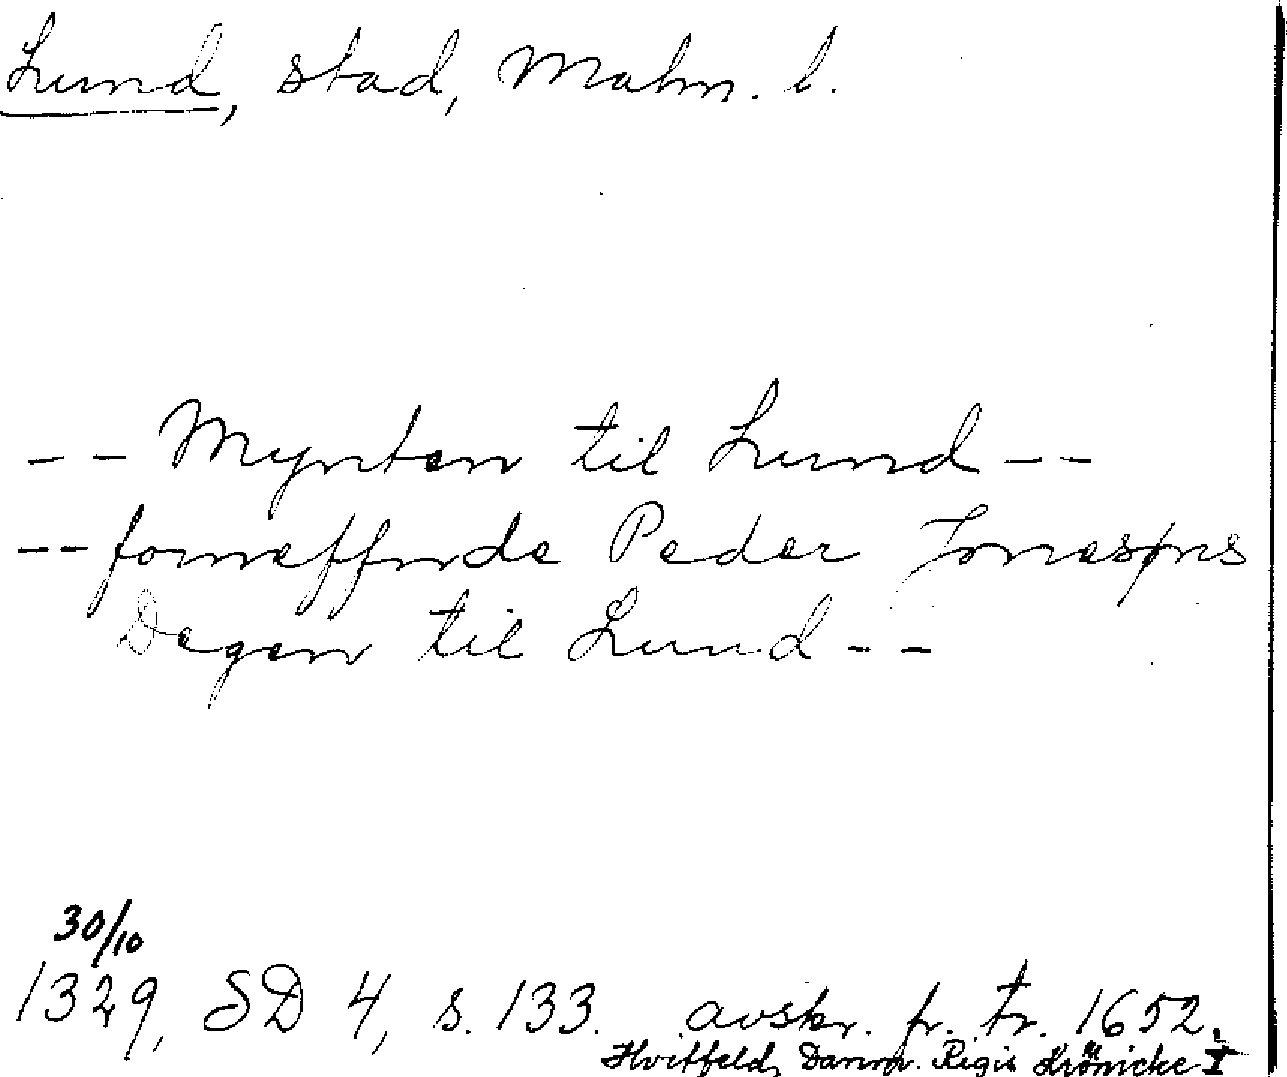 Lund, stad, Malm. l.
-- Mynten til Lund --
-- forneffnde Peder Jonesøns
Degen til Lund --
30/10
1329, SD 4, s. 133. avskr. fr. tr. 1652.
Hvitfeld, Danm. Rigis Krönicke I